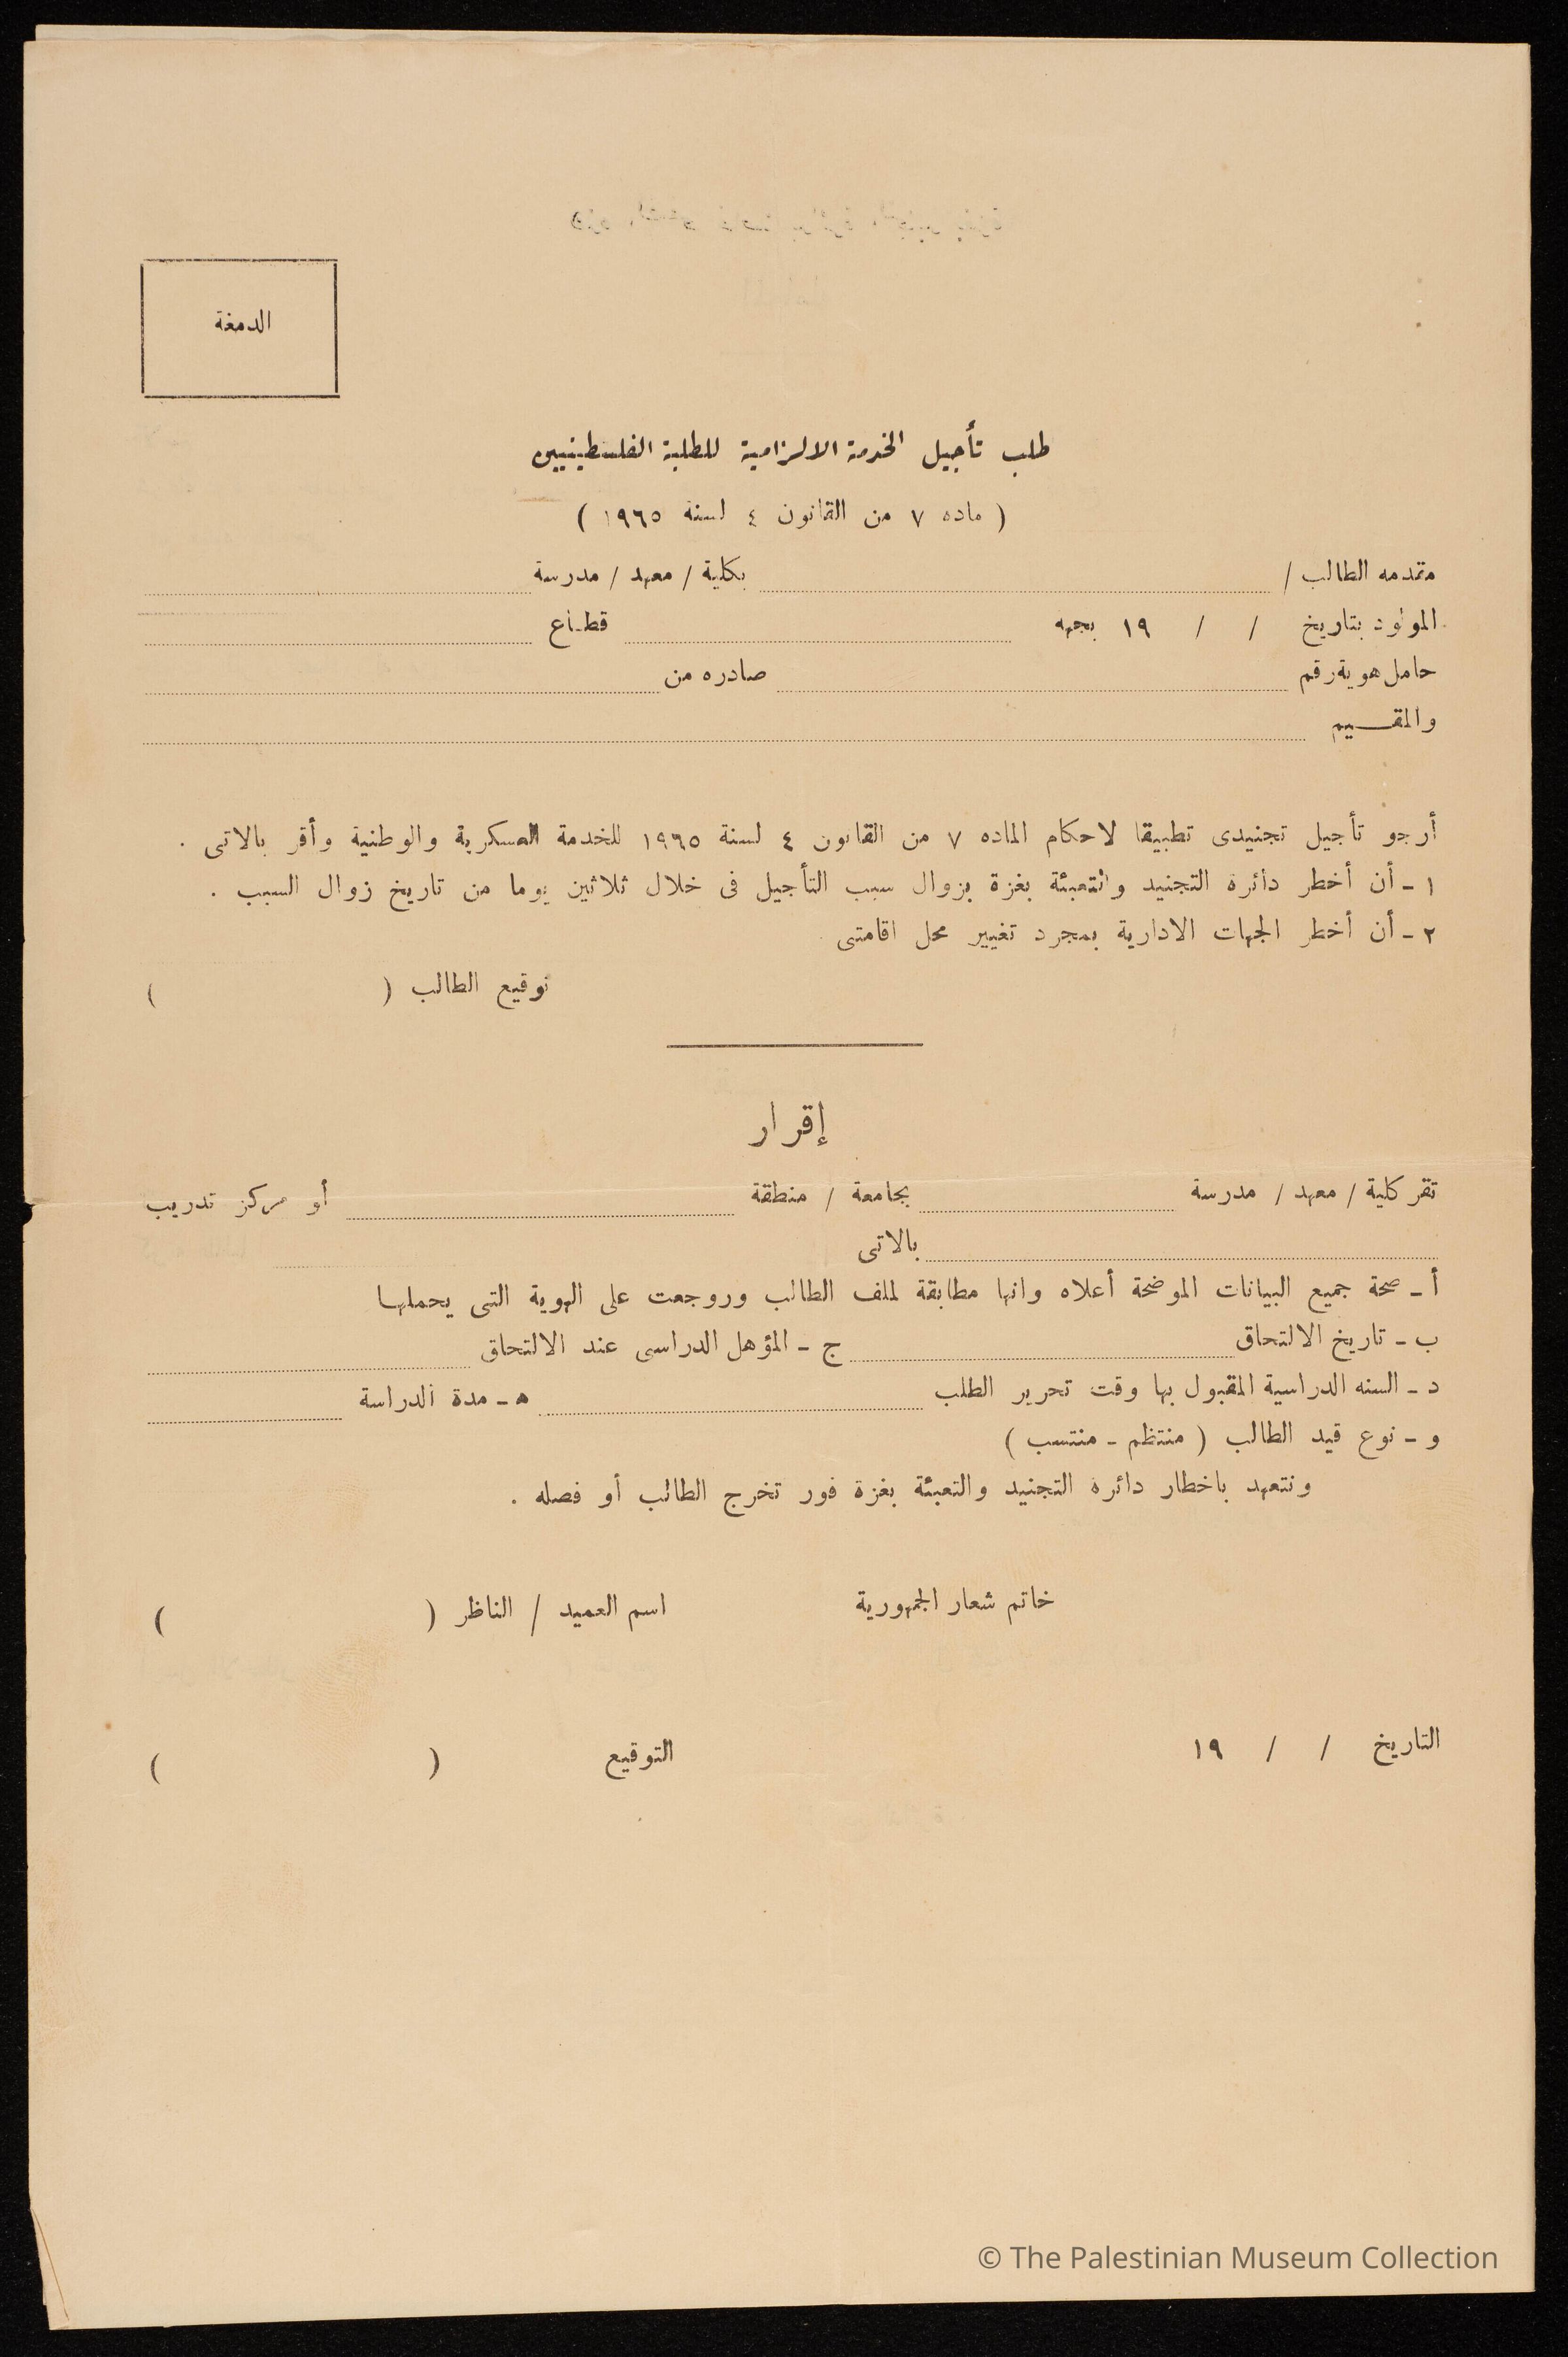 الدمغة
طلب تأجيل الخدمة الالزامية للطلبة الفلسطينيين
( ماده ٧ من القانون ٤ لسنة ١٩٦٥ )
مقدمه الطالب / بكلية / معهد / مدرسة
المولود بتاريخ / / ١٩ بجهه قطاع
حامل هوية رقم صادره من
والمقسيم
أرجو تأجيل تجنيدى تطبيقا لاحكام الماده ٧ من القانون ٤ لسنة ١٩٦٥ للخدمة العسكرية والوطنية وأقر بالاتى .
١ - أن أخطر دائرة التجنيد والتعبئة بغزة بزوال سبب التأجيل فى خلال ثلاثين يوما من تاريخ زوال السبب .
٢ - أن أخطر الجهات الادارية بمجرد تغيير محل اقامتى
توقيع الطالب ( )
إقرار
تقر كلية / معهد / مدرسة بجامعة / منطقة أو مركز تدريب
بالاتى
أ - صحة جميع البيانات الموضحة أعلاه وانها مطابقة لملف الطالب وروجعت على الهوية التى يحملها
ب - تاريخ الالتحاق ج - المؤهل الدراسى عند الالتحاق
د - السنه الدراسية المقبول بها وقت تحرير الطلب ه - مدة الدراسة
و - نوع قيد الطالب ( منتظم - منتسب )
ونتعهد باخطار دائرة التجنيد والتعبئة بغزة فور تخرج الطالب أو فصله .
خاتم شعار الجمهورية اسم العميد / الناظر ( )
التاريخ / / ١٩ التوقيع ( )
© The Palestinian Museum Collection